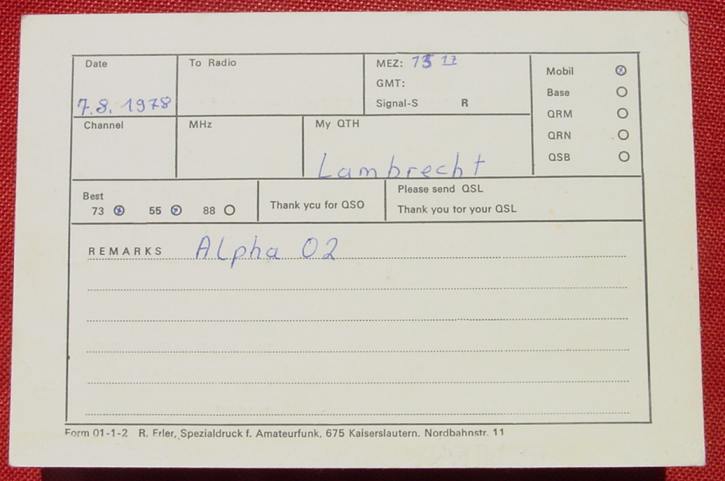 Date To Radio MEZ: 15 17
GMT:
7.8.1978 Signal-S R
Channel MHz My QTH
Lambrecht
Mobil
Base
QRM
QRN
QSB
Best
73 55 88
Thank you for QSO
Please send QSL
Thank you tor your QSL
REMARKS Alpha 02
Form 01-1-2 R. Erler, Spezialdruck f. Amateurfunk, 675 Kaiserslautern. Nordbahnstr. 11